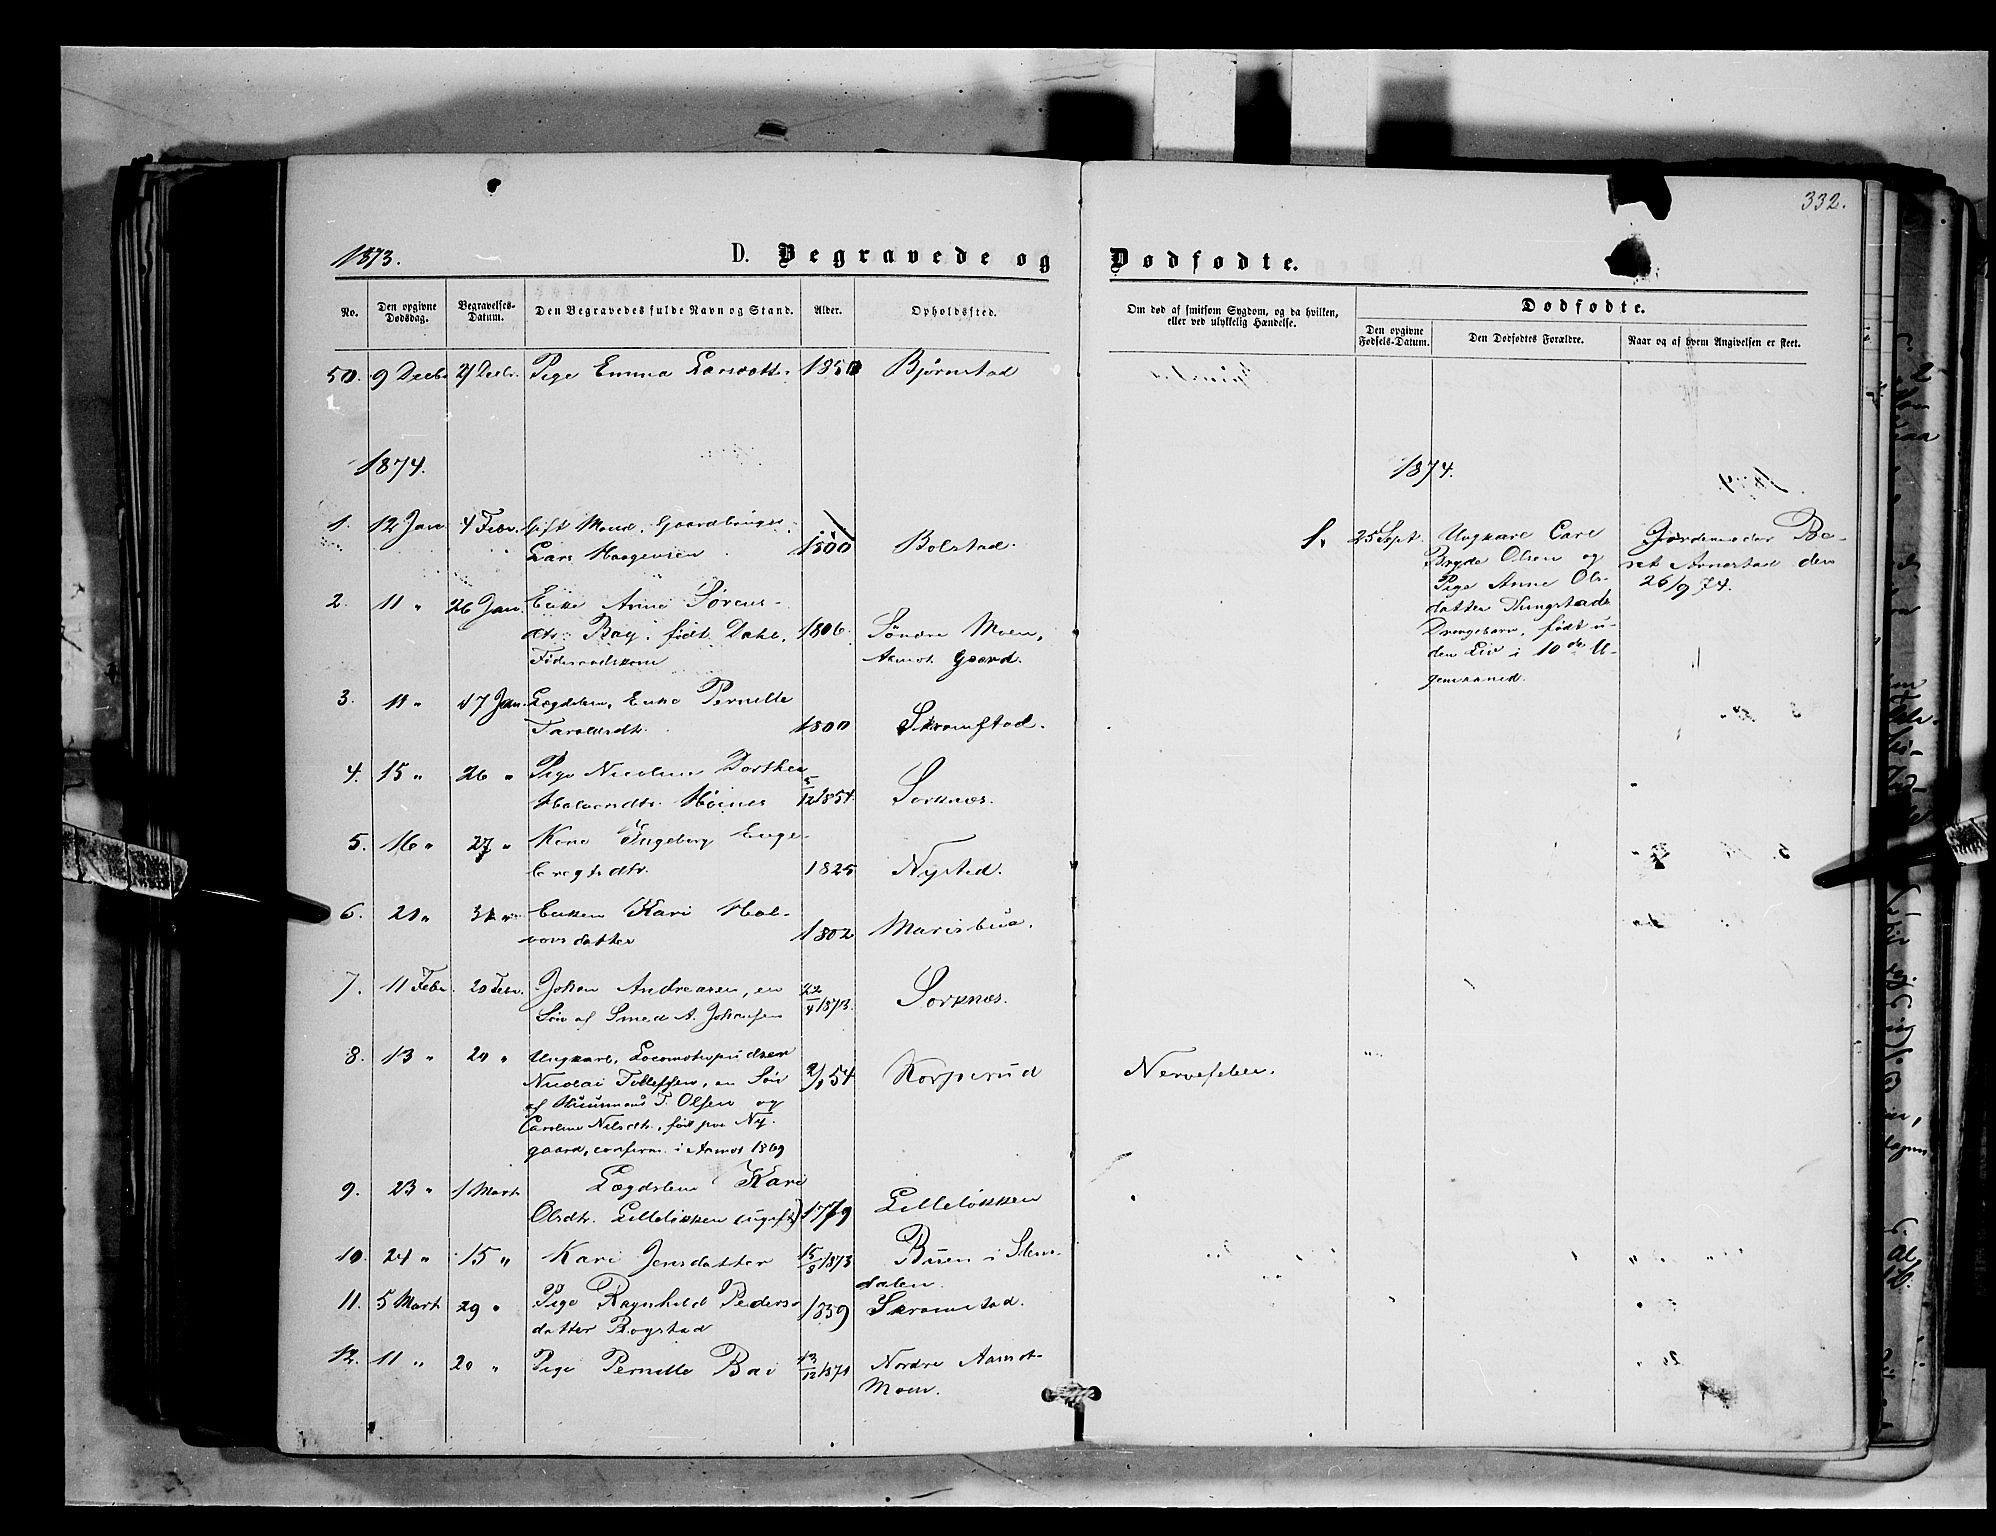 332.
1873.
D. Begravede og Dødfødte.
No.
Den opgivne Dødsdag.
Begravelses-Datum.
Den Begravedes fulde Navn og Stand.
Alder.
Opholdssted.
Om død af smitsom Sygdom, og da hvilken, eller ved ulykkelig Hændelse.
Dødfødte.
Den opgivne Fødsels-Datum.
Den Dødfødtes Forældre.
Naar og af hvem Angivelsen er skeet.
50. 9 Decbr Decbr. Pige Emma Larsdatter 1850 Bjørnstad
1874.
1874.
1. 12 Jan 4 Febr. Gift Mand, Gaardbruger
Lars Haagensen 1800 Bolstad.
2. 11 " 26 Jan. Enke Anne Sørens-
dtr. Bay, født Dahl, 1806. Søndre Moen,
Føderaadskone Aamot Gaard.
3. 11 " 17 Jan. Lægdslem, Enke Pernille
Taraldsdtr. 1800 Skramstad.
4. 15 " 26 " Pige Nicoline Dorthea
Halvorsdtr. Høines 5/12 1854. Sorknæs.
5. 16 " 27 " Kone Ingeborg Enge-
bregtsdtr. 1825 Nysted.
6. 21 " 31 " Enken Kari Hal-
vorsdatter 1802 Marisbua.
7. 11 Febr. 20 Febr. Johan Andreasen, en
Søn af Smed A. Johansen 22/4 1873. Sorknæs.
8. 13 " 20 " Ungkarl, Locomotivpudser
Nicolai Tollefsen, en Søn 54 Korperud Nervefeber.
af Huusmand T. Olsen og
Caroline Nilsdtr., født paa Ny-
gaard, confirm. i Aamot 1869
9. 23 " 1 Mart. Lægdslem Kari
Olsdtr. Lilleløkken (ugift) 1779 Lilleløkken
10. 24 " 15 " Kari Jensdatter 15/8 1873 Buen i
dalen.
11. 5 Mart. 29 " Pige Ragnhild Peders-
datter Bogstad 1839 Skramstad.
12. 11 " 20 " Pige Pernille Bai 13/12 1871 Nordre Aamot-
Moen.
1. 25 Sept. Ungkarl Carl
Bryde Olsen og
Pige Anne Ols-
datter Tingstad.
Drengebarn, født u-
den Liv i 10de U-
gemaaned.
Jordemoder Be-
ret Arnestad den
26/9 74.